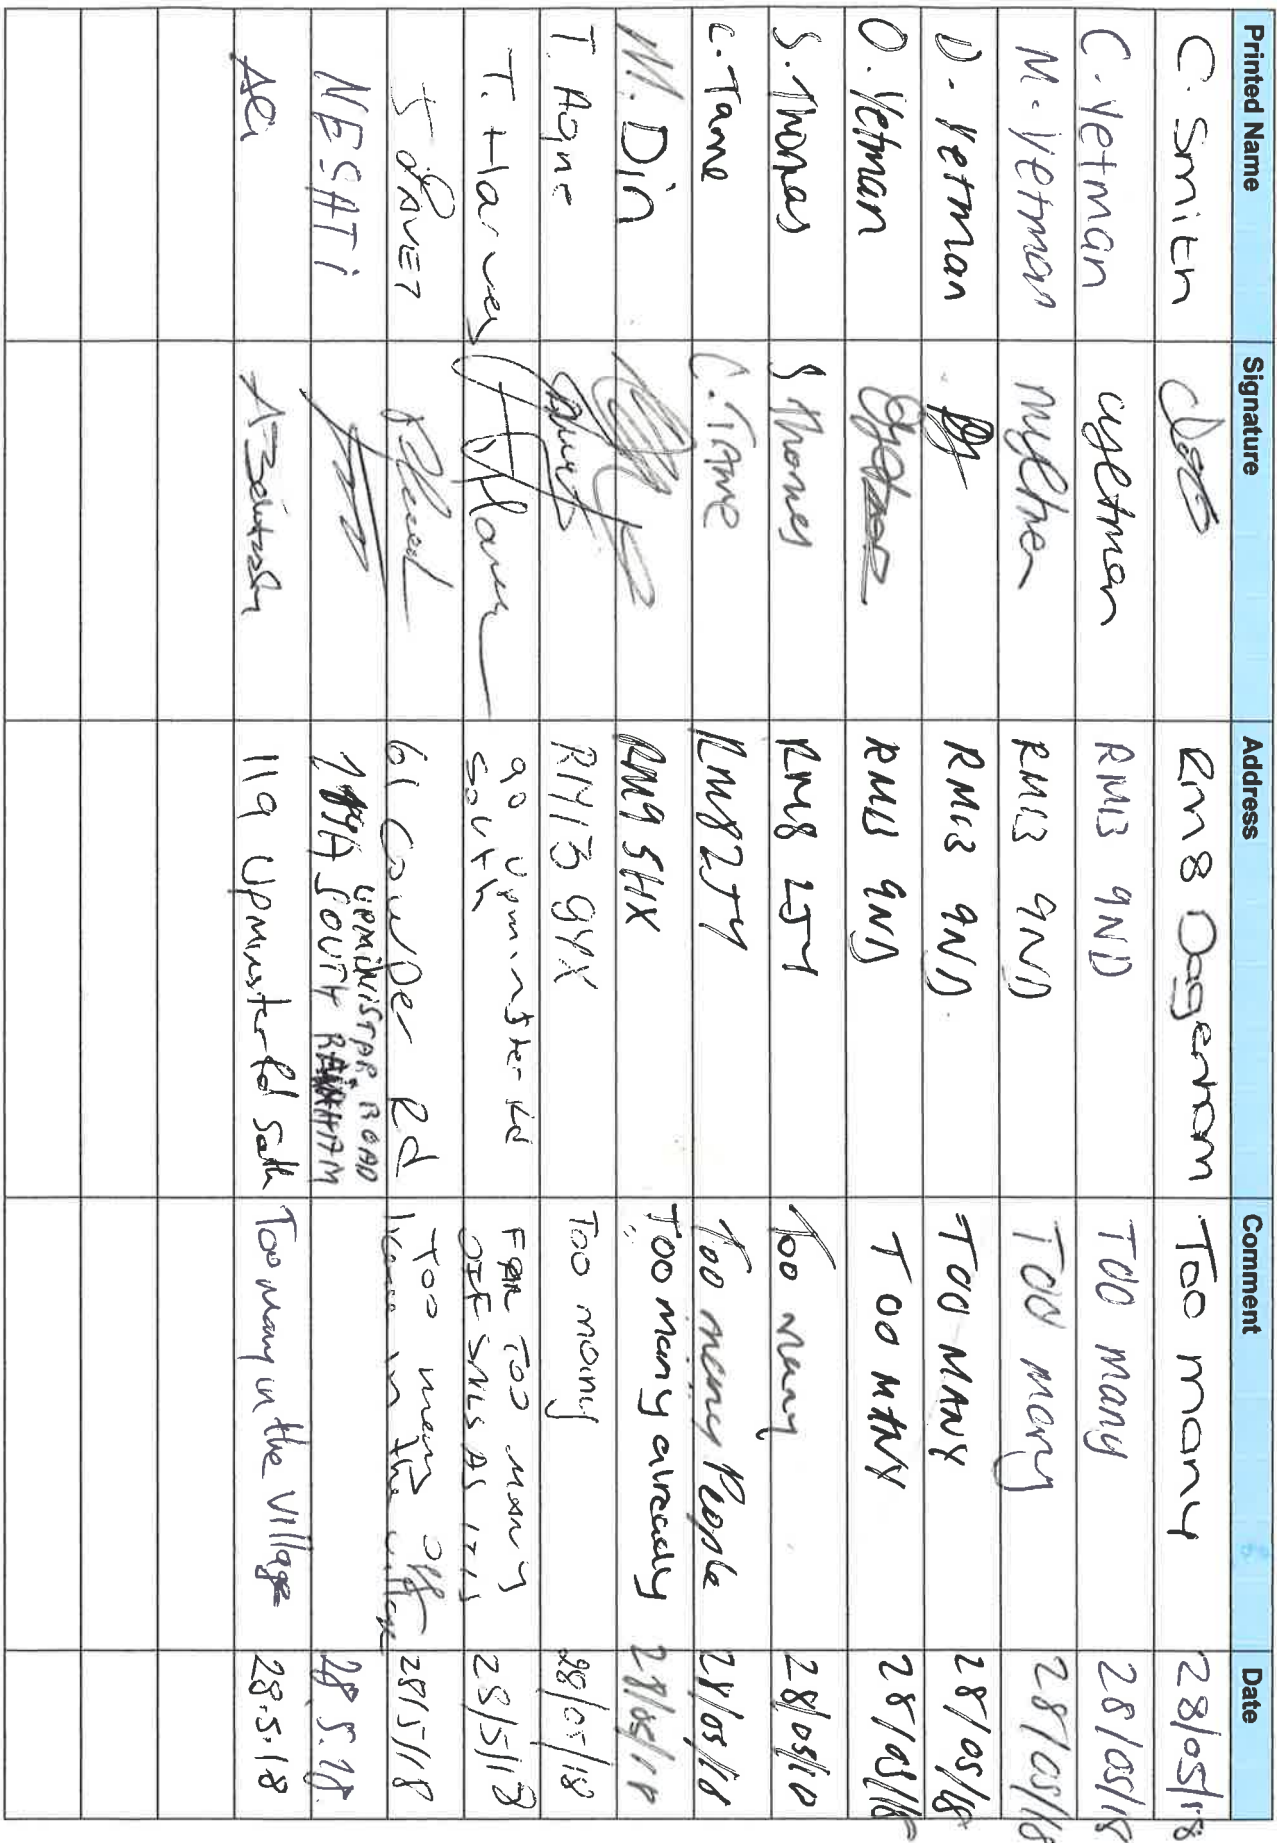 Printed Name Signature Address Comment Date
C. Smith RM8 Dagenham Too many 28/05/18
C. Yetman cyetman RM13 9ND TOO many 28/05/18
M. Yetman RM13 9ND TOO many 28/05/18
D. Yetman RM13 9ND. TOO MANY 28/05/18
O. Yetman RM13 9ND TOO MANY 28/05/18
S. Thomas S Thomas RM8 2JY Too many 28/05/18
C. Tame C. TAME RM8 2JY Too many People 28/05/18
M. Din RM9 5HX Too Many already 28/05/18
T. Agne RM13 9YX Too many 28/05/18
T. Harvey T Harvey 90 Upminster Rd
South FAR TOO MANY
OFF SALES AS IT IS 28/5/18
61 Cowper Rd Too many off
licence in the village 28/5/18
NESATi UPMINISTAR ROAD
SOUTH RAINHAM 28.5.18.
Ali 119 Upminster Rd South Too many in the village 28.5.18